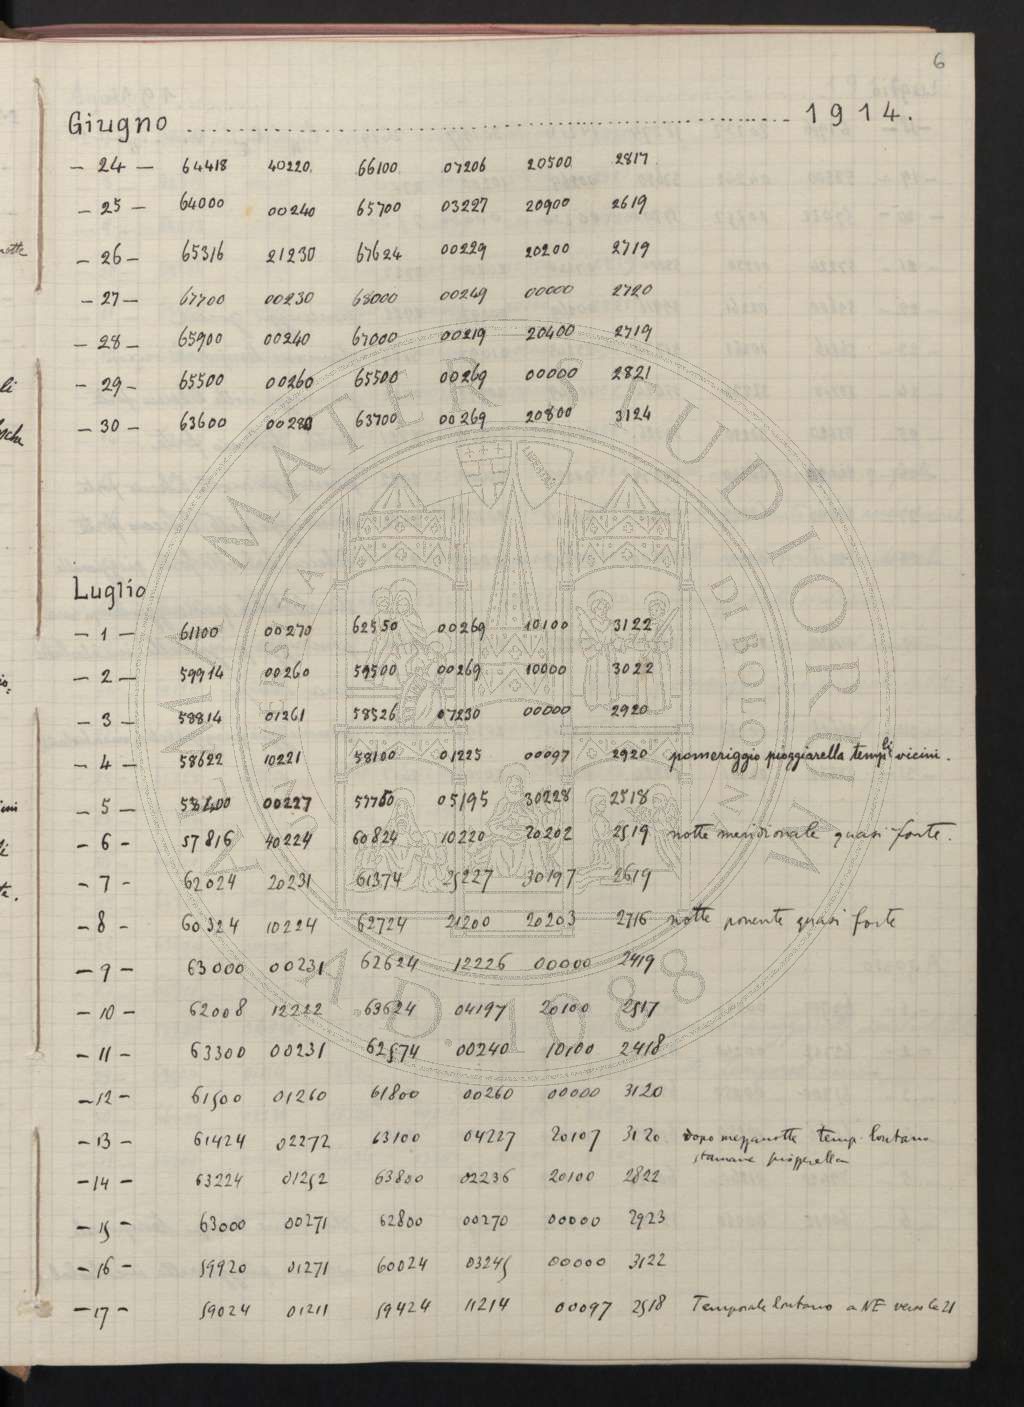 6
Giugno ........................ 1914.
- 24 - 64418 40220 66100 07206 20500 2817
- 25 - 64000 00240 65700 03227 20900 2619
- 26 - 65316 21230 67624 00229 20200 2719
- 27 - 67700 00230 68000 00249 00000 2720
- 28 - 65900 00240 67000 00219 20400 2719
- 29 - 65500 00260 65500 00269 00000 2821
- 30 - 63600 63700 00269 20800 3124
Luglio
- 1 - 61100 00270 62550 00269 10100 3122
- 2 - 59914 00260 59500 00269 10000 3022
- 3 - 58814 01261 58526 07230 00000 2920
- 4 - 58622 10221 58100 01225 00097 2920 pomeriggio pioggiarella temp.li vicini.
- 5 - 58400 00227 57750 05195 30228 2518
- 6 - 57816 40224 60824 10220 20202 2519 notte meridionale quasi forte.
- 7 - 62024 20231 61374 25227 30197 2619
- 8 - 60324 10224 62724 21200 20203 2716 notte ponente quasi forte
- 9 - 63000 00231 62624 12226 00000 2419
- 10 - 62008 12222 63624 04197 20100 2517
- 11 - 63300 00231 62574 00240 10100 2418
- 12 - 61500 01260 61800 00260 00000 3120
- 13 - 61424 02272 63100 04227 20107 3120 dopo mezzanotte temp. lontano
stamane pioggerella
- 14 - 63224 01252 63800 02236 20100 2822
- 15 - 63000 00271 62800 00270 00000 2923
- 16 - 59920 01271 60024 03245 00000 3122
- 17 - 59024 01211 59424 11214 00097 2518 Temporale lontano a NE verso le 21
ALMA MATER STUDIORUM
UNIVERSITÀ DI BOLOGNA
A.D. 1088